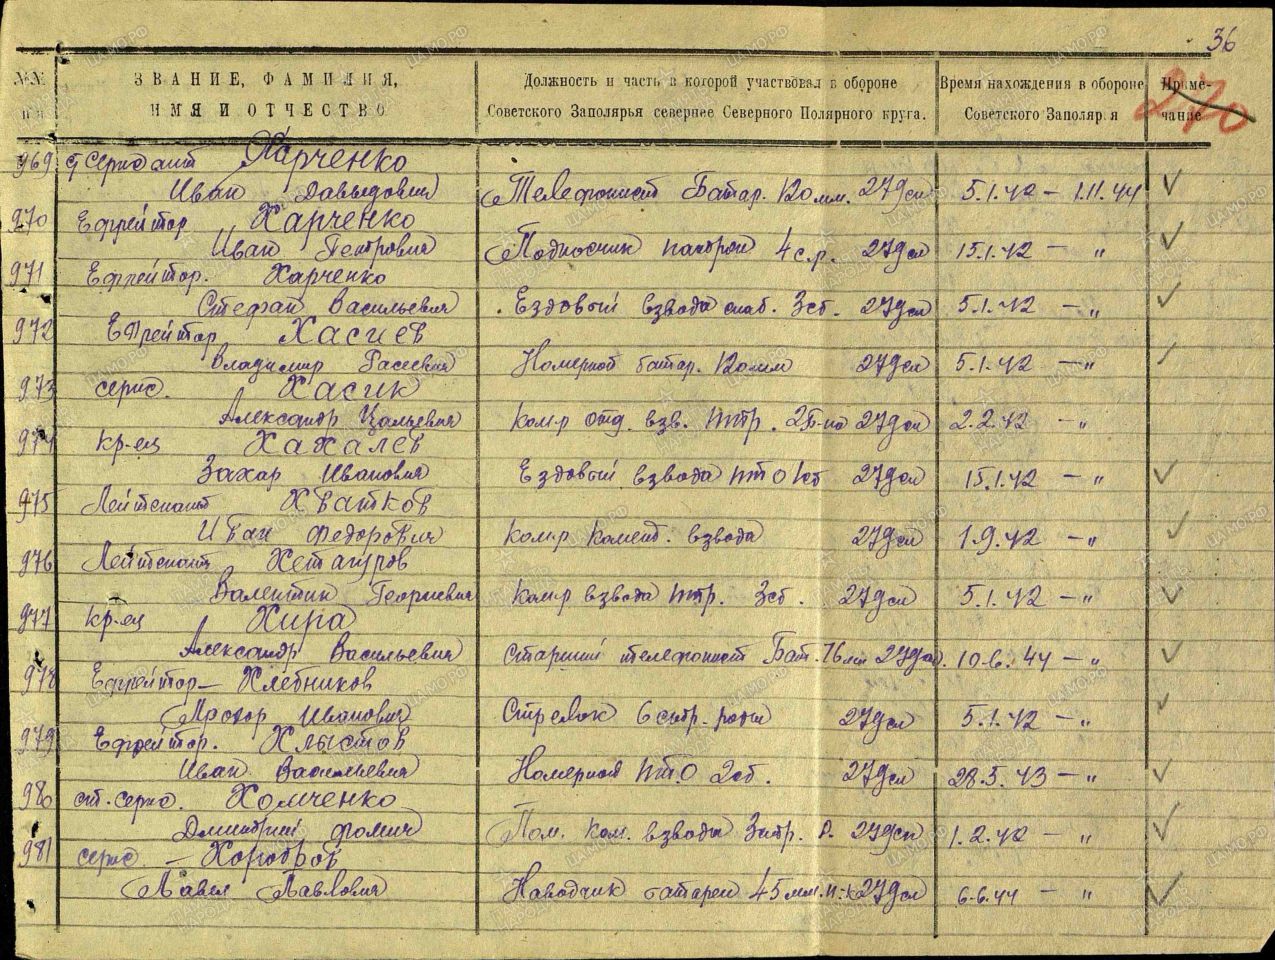 36
270
№№ п/п
ЗВАНИЕ, ФАМИЛИЯ, ИМЯ И ОТЧЕСТВО
Должность и часть в которой участвовал в обороне Советского Заполярья севернее Северного Полярного круга.
Время нахождения в обороне Советского Заполяр.я
Приме-чание
969 Сержант Харченко
Иван Давыдович Телефонист Батар. 120 мм. 27 дсп 5.1.42 – 1.11.44 ✓
970 Ефрейтор Харченко
Иван Петрович Подносчик патрон 4 с.р. 27 дсп 15.1.42 – „ ✓
971 Ефрейтор. Харченко
Стефан Васильевич Ездовый взвода снаб. 3сб. 27 дсп 5.1.42 – „ ✓
972 Ефрейтор Хасиев
Владимир Гасиевич Номерной батар. 120 мм 27 дсп 5.1.42 – „ ✓
973 серж. Хасик
Александр Ком-р отд. взв. птр. 2 б-на 27 дсп 2.2.42 – „
974 кр-ец Хахалев
Захар Иванович Ездовый взвода ПТО 1сб 27 дсп 15.1.42 – „ ✓
975 Лейтенант Хватков
Иван Федорович Ком-р Коменд. взвода 27 дсп 1.9.42 – „ ✓
976 Лейтенант Хетагуров
Валентин Георгиевич Ком-р взвода птр. 3сб. 27 дсп 5.1.42 – „ ✓
977 кр-ец Хира
Александр Васильевич Старший телефонист Бат. 76 мм 27 дсп. 10.6.44 – „ ✓
978 Ефрейтор – Хлебников
Прохор Иванович Стрелок 6 стр. роты 27 дсп 5.1.42 – „ ✓
979 Ефрейтор. Хлыстов
Иван Васильевич Номерной ПТО 2сб. 27 дсп 28.5.43 – „ ✓
980 ст. серж. Хомченко
Дмитрий Фомич Пом. ком. взвода 3 стр. р. 27 дсп 1.2.42 – „ ✓
981 серж – Хоробров
Павел Павлович Наводчик батареи 45 мм. 27 дсп 6.6.44 – „ ✓